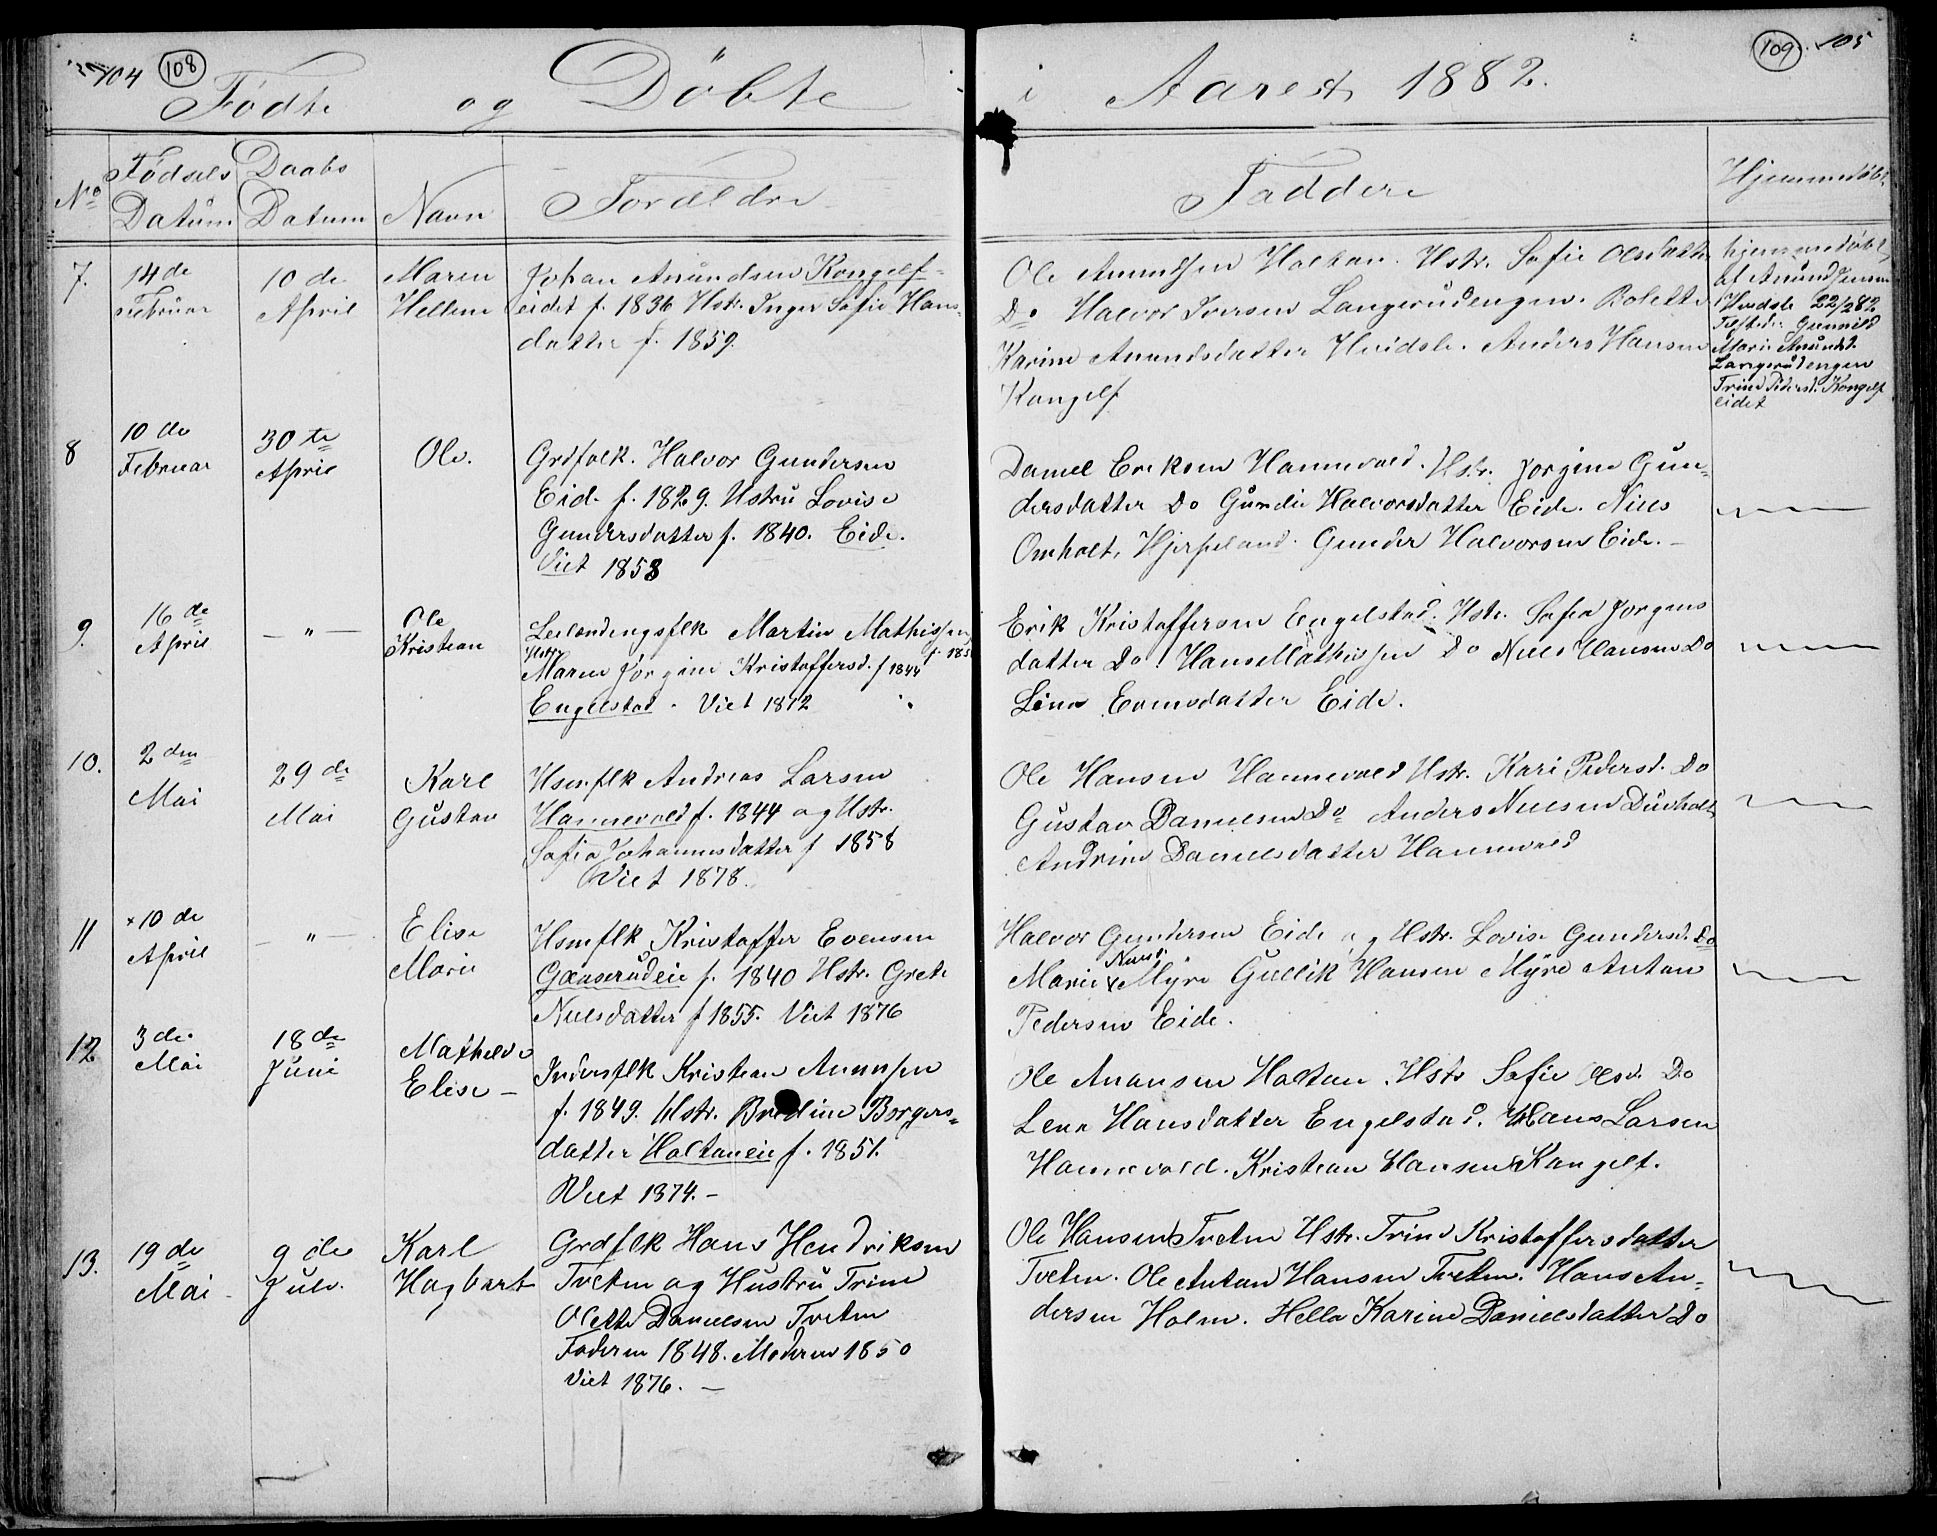 104 108
Födte og Döbte i Aaret 1882.
109 105
No Födsels Datum Daabs Datum Navn Foraeldre Faddere Hjemmedöbt
7. 14de Februar 10de April Maren Helline
Johan Anundsen Kongelf-
eidet f. 1836 Hstr. Inger Sofie Hans-
datter f. 1859.
Ole Anundsen Holtan. Hstr. Sofie Olsdatter
Do Halvor Iversen Langerudengen. Bolette
Karine Anundsdatter Hvidsle. Anders Hansen
Kongelf
hjemmedöbt
af Anund Jensen
Hvidsle 22/2 82
Tilstede: Gunnild
Marie Anundsd.
Langerudengen
Trine Pedersd. Kongelf
eidet
8 10de Februar 30te April Ole.
Grdfolk. Halvor Gundersen
Eide f. 1829. Hstru Lovise
Gundersdatter f. 1840. Eide.
Viet 1858
Daniel Eriksen Hannevold. Hstr. Jorgine Gun-
dersdatter Do Gunder Halvorsdatter Eide. Niels
Omholt, Hjerpeland. Gunder Halvorsen Eide. -
9. 16de April - " - Ole Kristian
Leilændingsflk Martin Mathissen
Hstr. f. 185
Maren Jorgine Kristoffersd. f 1844
Engelstad. Viet 1872
Erik Kristoffersen Engelstad. Hstr. Sofia Jorgens
datter Do. Hans Mathissen Do Niels Hansen Do
Lina Evensdatter Eide.
10. 2den Mai 29de Mai Karl Gustav
Hsmflk Andreas Larsen
Hannevold f. 1844 og Hstr.
Sofia Johannesdatter f 1858
Viet 1878.
Ole Hansen Hannevold Hstr. Kari Pedersd. Do
Gustav Danielsen Do Anders Nielsen Dueholt
Andrine Danielsdatter Hannevold
11 × 10de April - " - Elise Marie
Hsmflk Kristoffer Evensen
Gaaserudeie f. 1840 Hstr. Grete
Nielsdatter f 1855. Viet 1876
Halvor Gundersen Eide og Hstr. Lovise Gundersd. Do
Nielsd.
Marie × Myre Gullik Hansen Myre Anton
Pedersen Eide.
12 3de Mai 18de Juni Mathilde Elise -
Inderstflk Kristian Anunsen
f. 1849. Hstr. Bredine Borgers-
datter Holtaneie f. 1851.
Viet 1874. -
Ole Anunsen Holtan. Hstr Sofie Olsd. Do
Lena Hansdatter Engelstad. Hans Larsen
Hannevold. Kristian Hansen Kongelf.
13. 19de Mai - 9de Juli. Karl Hagbart
Grdflk Hans Hendriksen
Tveten og Hustru Trine
Olette Danielsen Tveten
Faderen 1848. Moderen 1850
Viet 1876. -
Ole Hansen Tveten Hstr. Trine Kristoffersdatter
Tveten. Ole Anton Hansen Tveten. Hans An-
dersen Holm. Hella Karine Danielsdatter Do